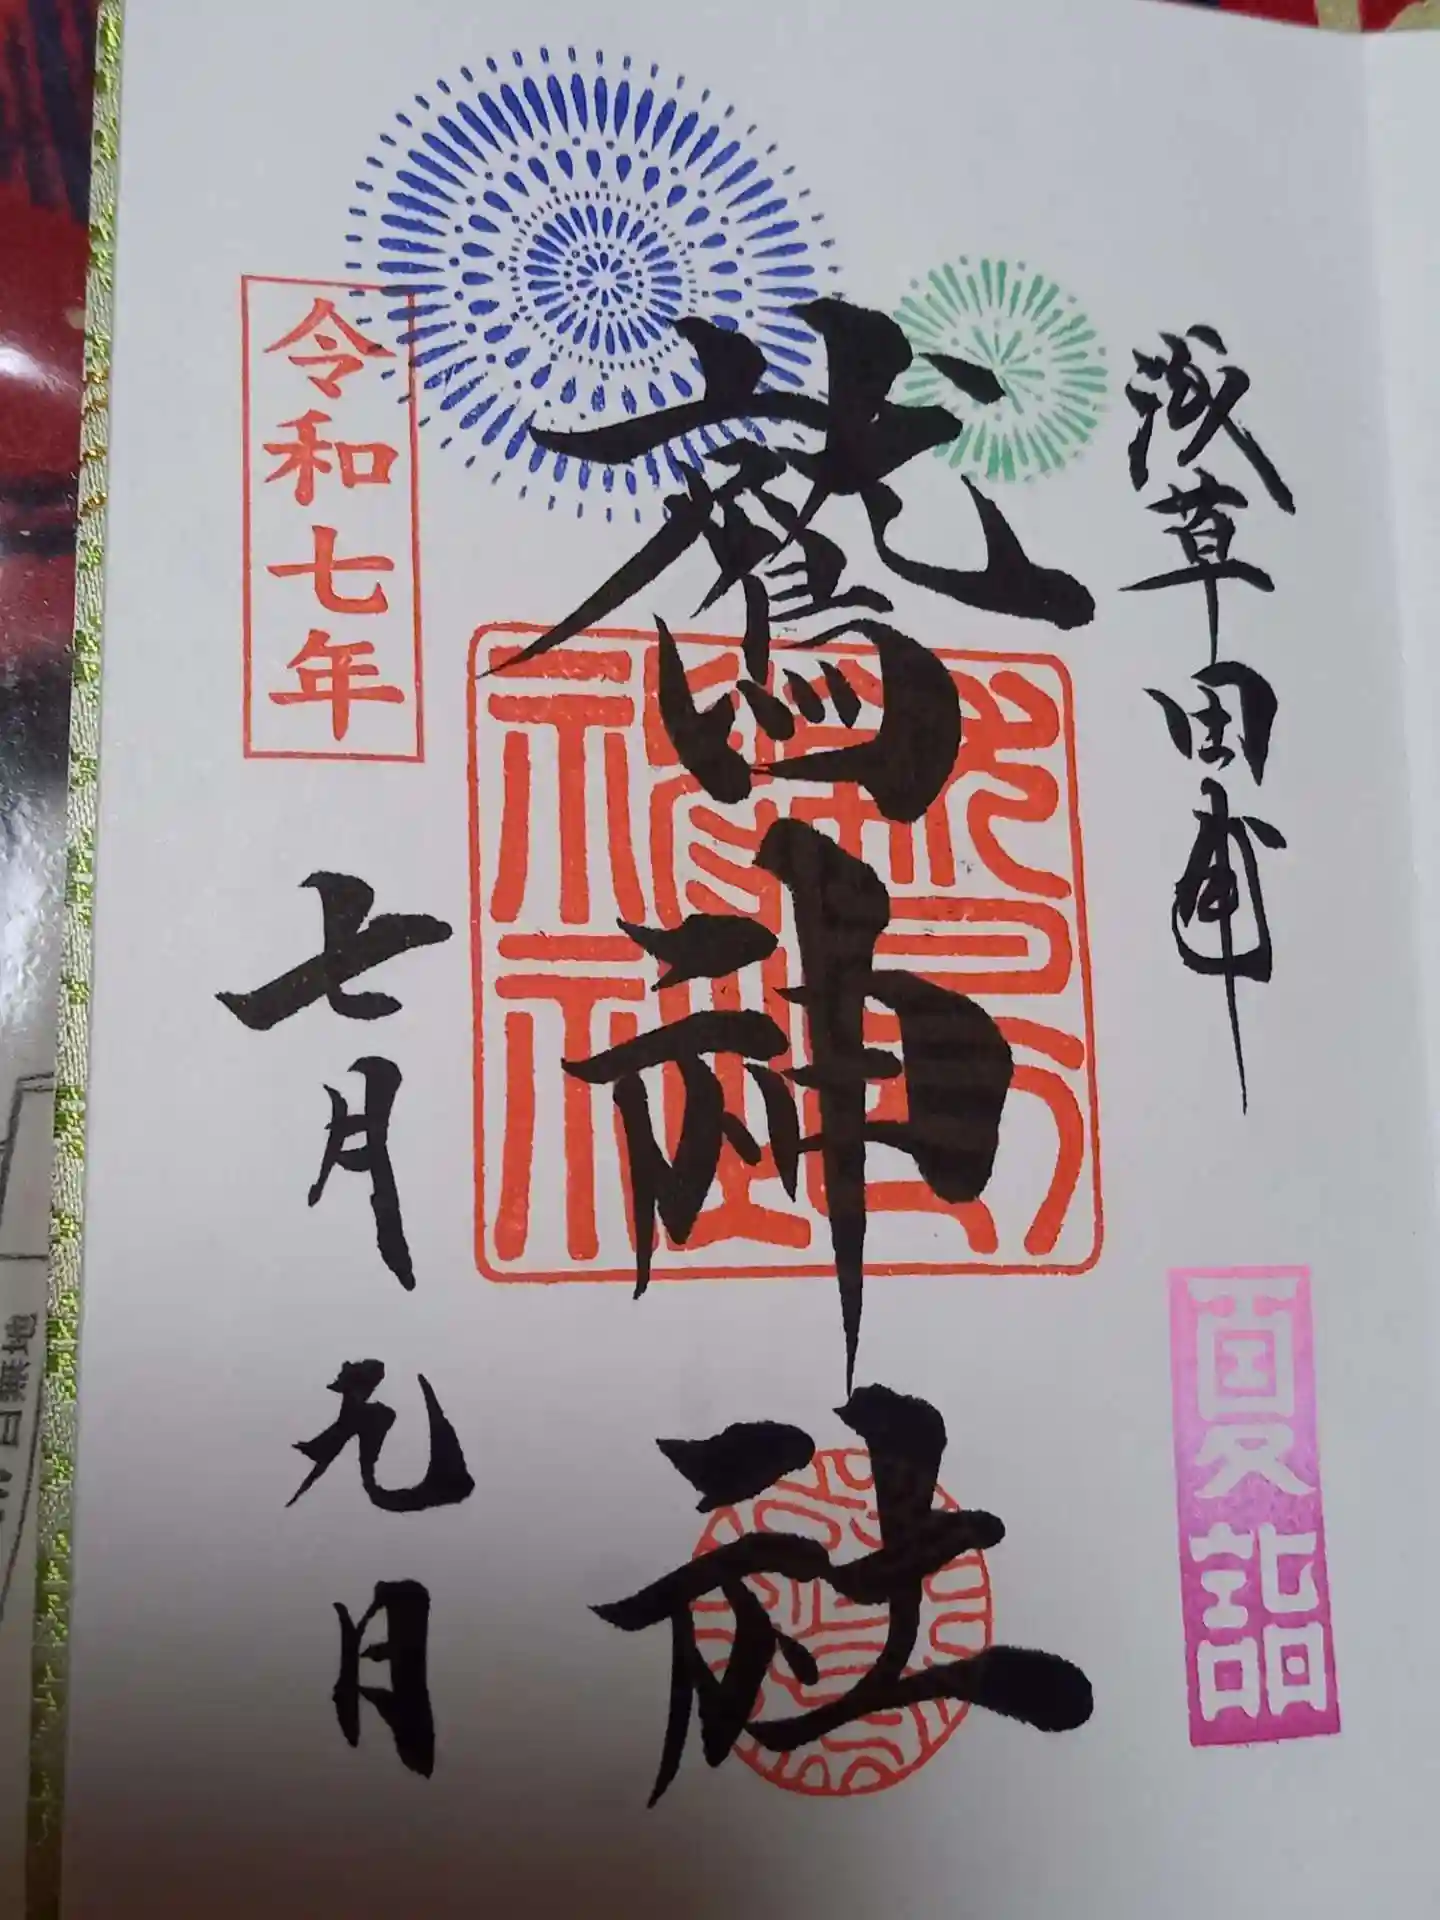 浅草田甫
夏詣
鷲神社
鷲神社
令和七年
七月元日
無地